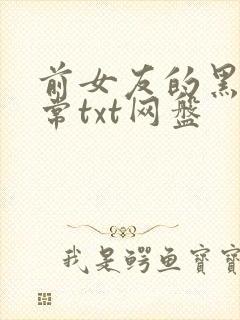 前女友的黑
常txt网盘
我是鳄鱼宝宝